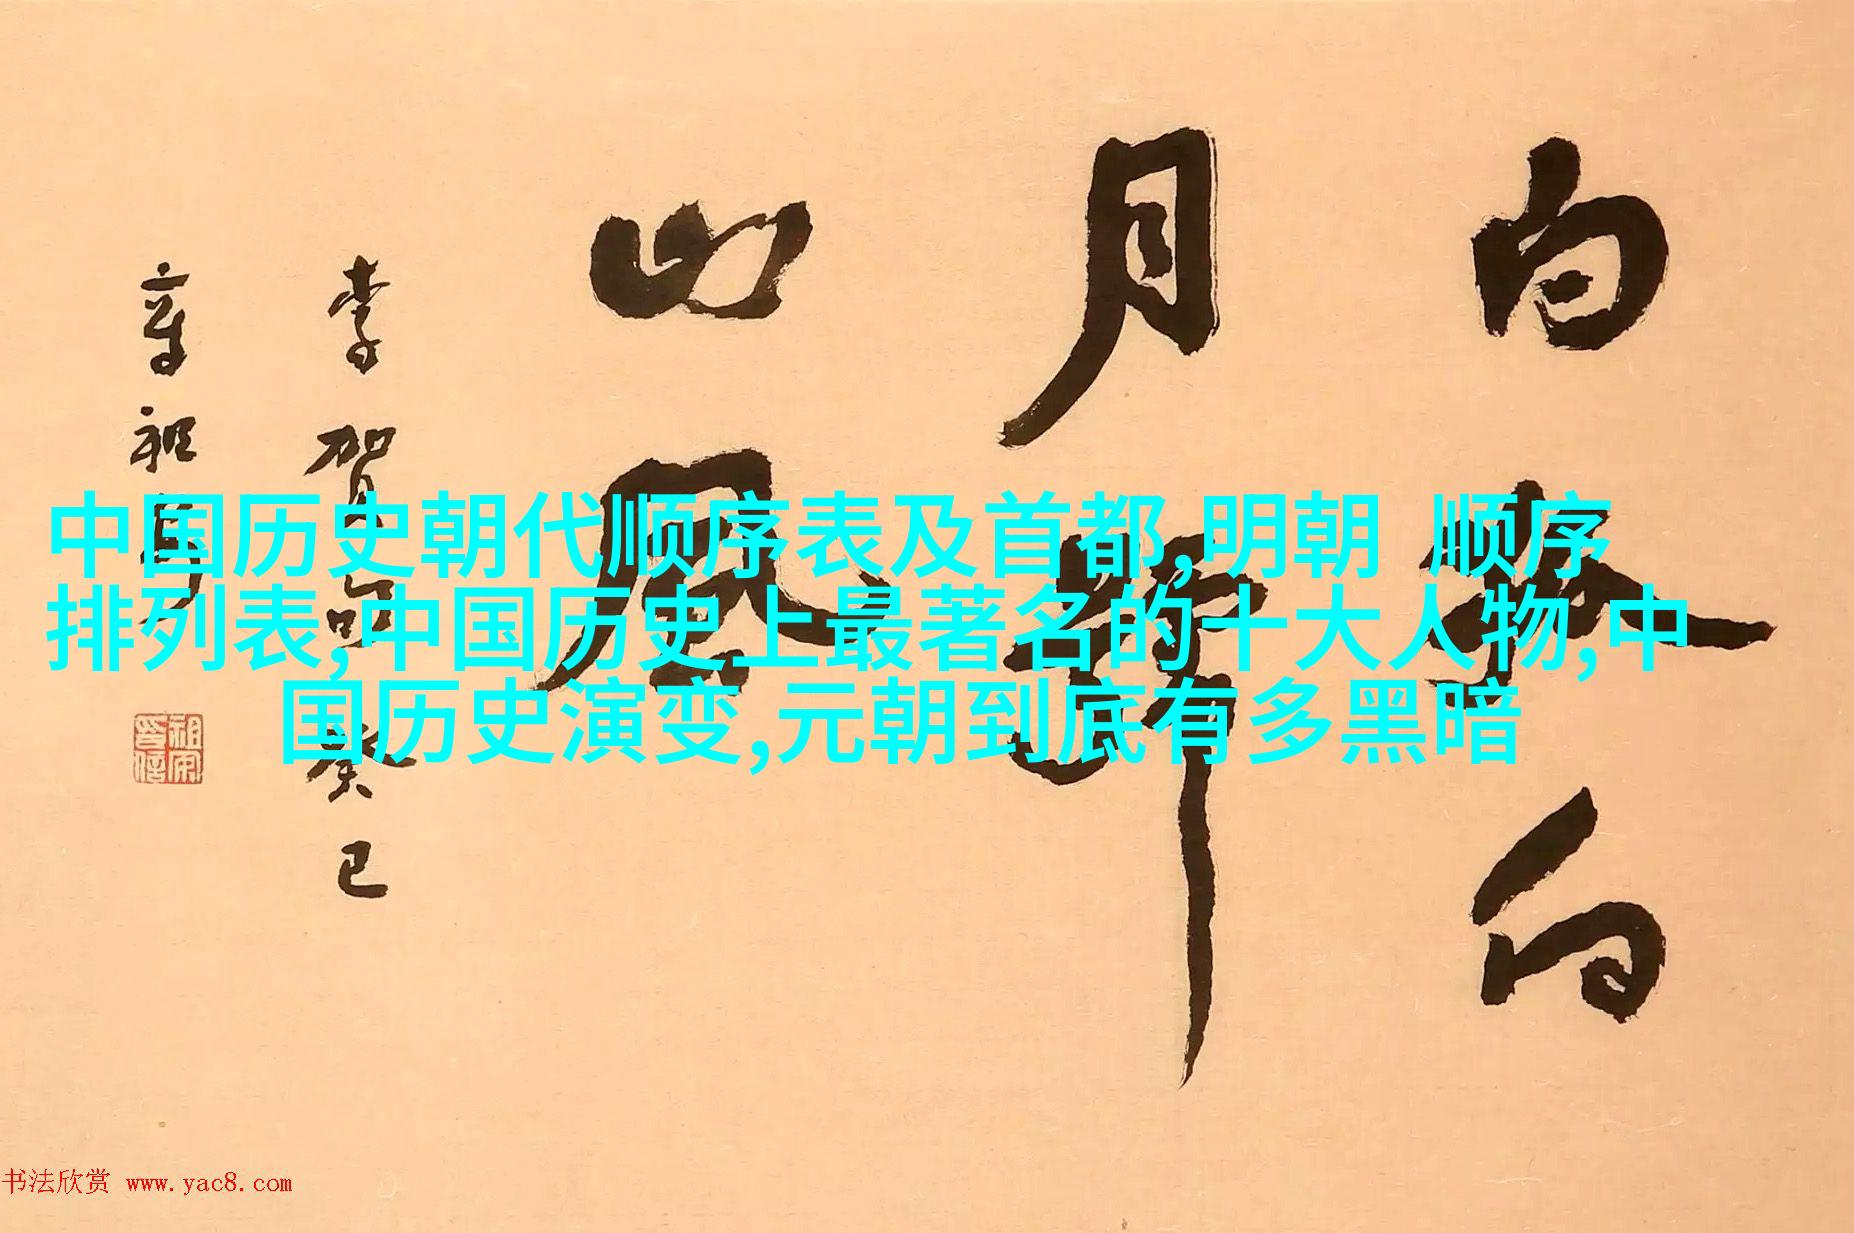 白
敢
白
月
山
李賀句 癸巳
章祖安
中国历史朝代顺序表及首都,明朝 顺序
排列表,中国历史上最著名的十大人物,中
国历史演变,元朝到底有多黑暗
书法欣赏 www.yac8.com